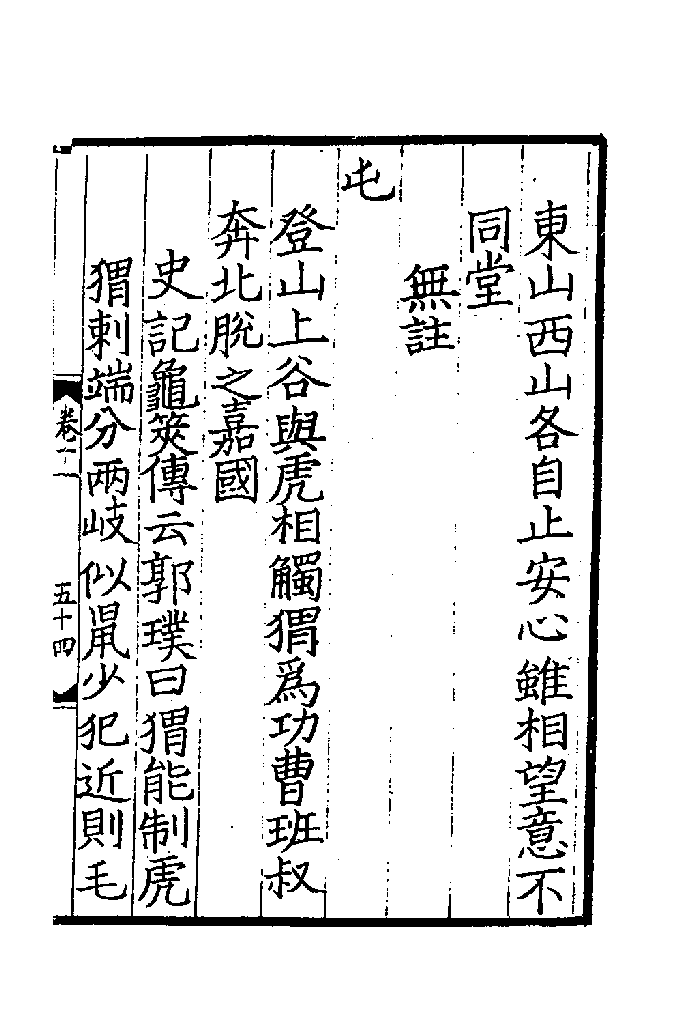 東山西山各自止安心雖相望意不
同堂
無註
屯
登山上谷與虎相觸猬爲功曹班叔
奔北脫之嘉國
史記龜筴傳云郭璞曰猬能制虎
猬刺端分兩岐似鼠少犯近則毛
卷十一
五十四